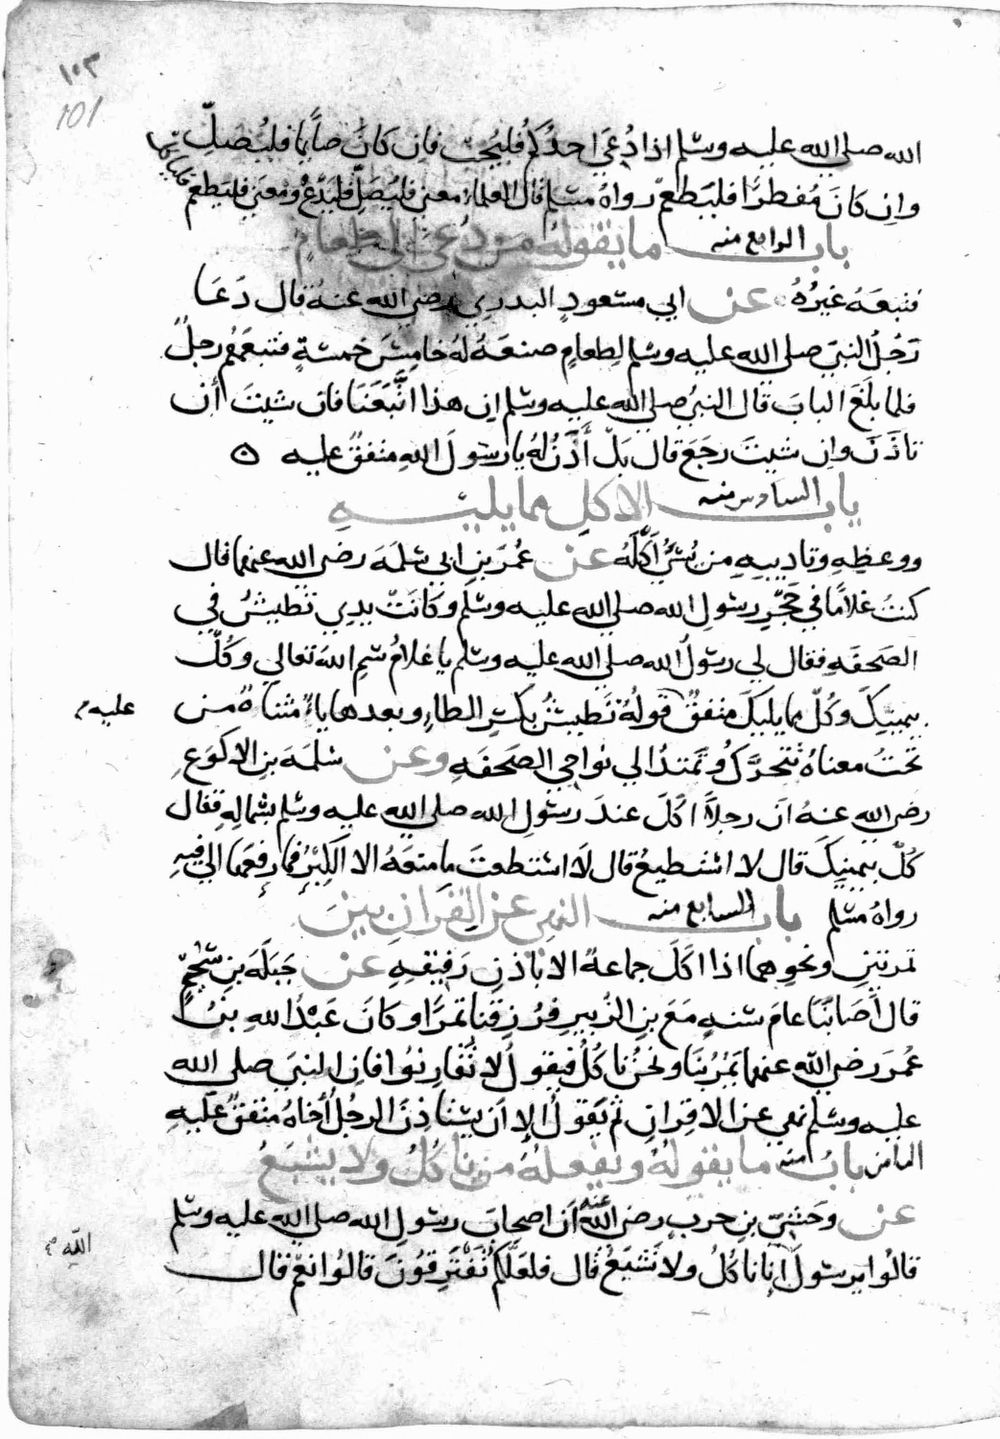 ١٠٣
101
الله صلى الله عليه وسلم اذا دُعِيَ احدُكُم فليُجب فان كانَ صاًيما فليُصَلِّ
وان كَانَ مُفطرًا فليَطعَم رواهُ مسلم قال العلماء معنى فليُصَلِّ فليَدْعُ ومعنى فليَطعم فلياكل
باب الرابع منه ما يقولهُ من دُعيَ الى طعامٍ
فتبعَهُ غيرُهُ عن ابي مسعودٍ البدريِ رضي الله عنهُ قال دَعَا
رَجُلٌ النبيَ صلى الله عليه وسلم لِطعامٍ صنعَهُ لهُ خامِسَ خمسَةٍ فتبعَهُم رجلٌ
فلما بلغَ البابَ قال النبيُ صلى الله عليه وسلم ان هذا اتَّبَعَنَا فان شيتَ أن
تاذَنَ وان شيتَ رجَعَ قال بَلْ أَذَنُ لهُ يا رسولَ اللهِ متفقٌ عليه ه
باب السادس منه الاكلِ مما يليهِ
ووعظِهِ وتاديبِهِ من يُسيُ اَكْلَهُ عن عُمَرَ بنِ ابي سَلَمَةَ رضي الله عنهما قال
كنتُ غلامًا في حَجْرِ رسولِ الله صلى الله عليه وسلم وكانَتْ يدِي تَطيشُ في
الصحفَهِ فقال لي رسولُ الله صلى الله عليه وسلم يا غلامُ سَمِ اللهَ تعالى وكُلْ
بيمينِكَ وكُلْ مما يليكَ متفقٌ قولُهُ تَطيشُ بكسرِ الطاءِ وبعدها ياءٌ مثناةٌ من
عليه
تحتُ معناهُ تتحرَّكُ وتمتدُ الى نواحي الصحفَهِ وعن سَلمَهَ بنِ الاكوَعِ
رضي الله عنهُ انَ رجلاً اَكَلَ عندَ رسولِ الله صلى الله عليه وسلم بشمالِهِ فقال
كُلْ بيمينِكَ قال لا استطيعُ قال لاَ استطعتَ ما منعَهُ الا الكِبْرُ فما رفعَها الى فيهِ
رواهُ مسلم باب السابع منه النهي عن القِرانِ بينَ
تمرتينِ ونحوِهما اذا اكَلَ جماعةً الا باذنِ رَفيقِهِ عن جَبَلَةَ بنِ سُحَيمٍ
قال أصَابَنَا عامَ سنهٍ مَعَ بنِ الزُبيرِ فرُزِقنا تمرًا وكانَ عَبْدُ اللهِ بنُ
عُمَرَ رضي الله عنهما يَمُرُ بنَا ونحنُ ناكُلُ فيقولُ لا تُقارِنُوا فان النبيَ صلى الله
عليه وسلم نهى عن الاقِرانِ ثم يَقولُ الا ان يستاذِنَ الرجُلُ أخاهُ متفقٌ عليهِ
الثامن باب منه ما يقولهُ ويفعلُهُ من ياكُلُ ولا يشبَعُ
عن وحشيّ بنِ حربٍ رضي الله عنه اَن اصحابَ رسولِ الله صلى الله عليه وسلم
قالُوا يرسولَ إنا ناكُلُ ولا نَشبَعُ قال فلعَلَّكُم تَفْتَرِقُونَ قالُوا نعَم قال
الله